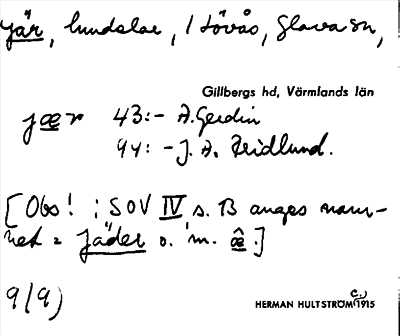 Jär, hundslar, i Lövås, Glava sn,
Gillbergs hd, Värmlands län
jær 43:- A. Gerdin
94: - J. A. Reidlund.
[Obs! i SOV IV s. 13 anges nam-
net = Jäder o. m. æ̂.]
9/9)
HERMAN HULTSTRÖM C:/1915